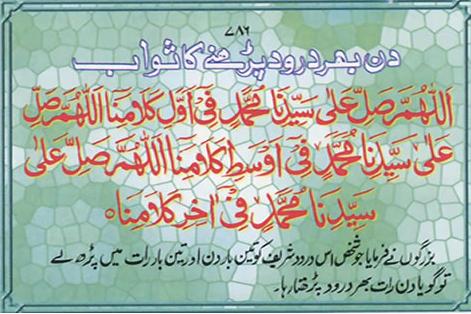 ۷۸۶
دن بھر درود پڑھنے کا ثواب
اَللّٰهُمَّ صَلِّ عَلٰى سَيِّدِنَا مُحَمَّدٍ فِىْ اَوَّلِ كَلَامِنَا اَللّٰهُمَّ صَلِّ
عَلٰى سَيِّدِنَا مُحَمَّدٍ فِىْ اَوْسَطِ كَلَامِنَا اَللّٰهُمَّ صَلِّ عَلٰى
سَيِّدِنَا مُحَمَّدٍ فِىْ اٰخِرِ كَلَامِنَا ہ
بزرگوں نے فرمایا جو شخص اس درود شریف کو تین بار دن اور تین بار رات میں پڑھ لے
تو گویا دن رات بھر درود پڑھتا رہا۔